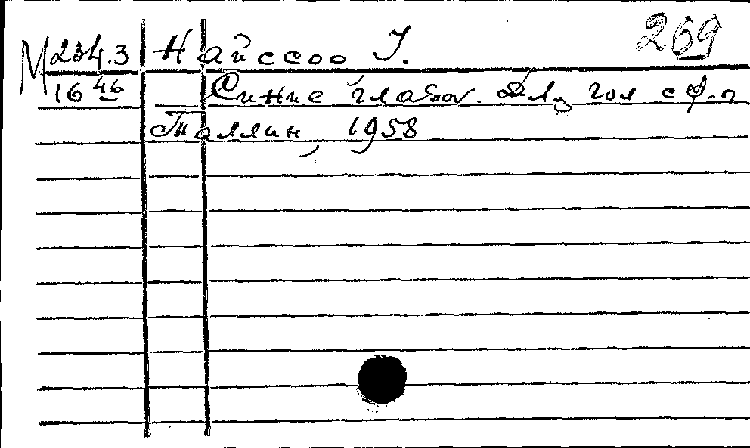 269
М 234.3 Найссоо У.
16 46 Синие глаза. Для гол с ф-п
Таллин, 1958